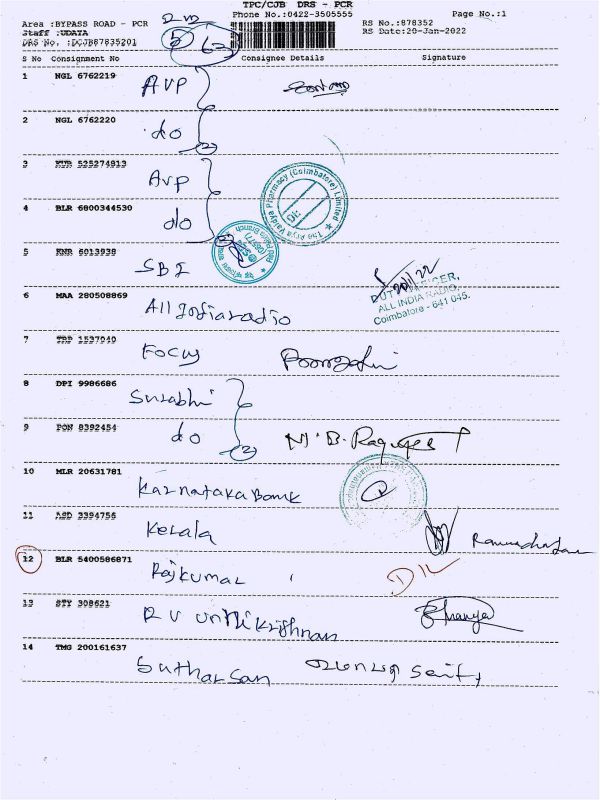 TPC/CJB DRS - PCR
Area :BYPASS ROAD - PCR
Phone No.:0422-3505555
Page No.:1
Staff :UDAYA
RS No.:878352
DRS No. :DCJB87835201
RS Date:20-Jan-2022
S No Consignment No Consignee Details Signature
1 NGL 6762219 AVP
2 NGL 6762220 do
(2)
3 525274913 AVP
4 BLR 6800344530 do
The Arya Vaidya Pharmacy (Coimbatore) Limited
5 KNR 6013938 SBI
6 MAA 280508869 All India radio
20/1/22
DUTY OFFICER,
ALL INDIA RADIO,
Coimbatore - 641 045.
7 TRP 1537040 Focus
8 DPI 9986686 Surabhi
9 PON 8392454 do
(2)
10 MLR 20631781 Karnataka Bank
11 ASD 2394756 Kerala
12 BLR 5400586871 Rajkumar
D/L
13 STY 308621 R V Unnikrishnan
14 TMG 200161637 Sutharsan